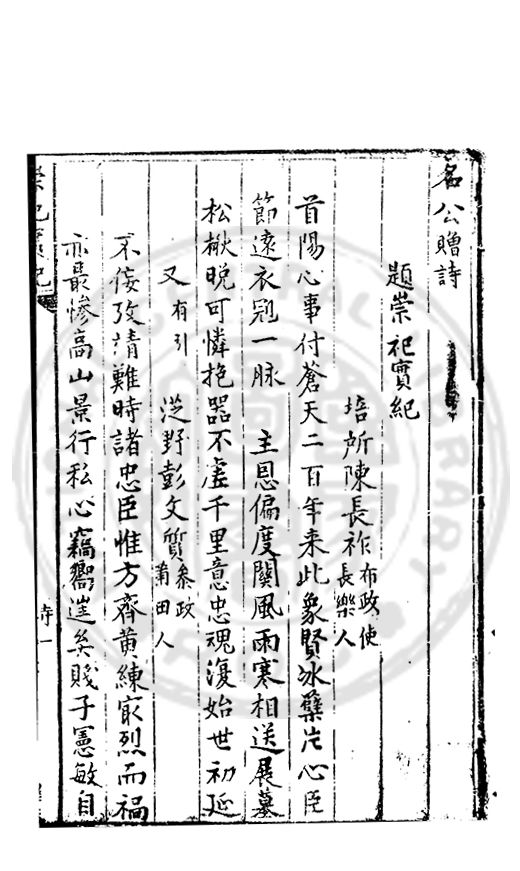 名公贈詩
題崇祀實紀
培所陳長祚布政使長樂人
首陽心事付蒼天二百年來此象賢冰櫱片心臣
節遠衣冠一脉　主恩偏度關風雨寒相送展墓
松楸晚可憐抱器不虛千里意忠魂復始世初延
又有引　芝野彭文質叅政莆田人
不佞攷靖難時諸忠臣惟方齊黄練寂烈而禍
亦最慘高山景行私心竊嚮逹矣賤子憲敏自
崇祀實紀
詩一